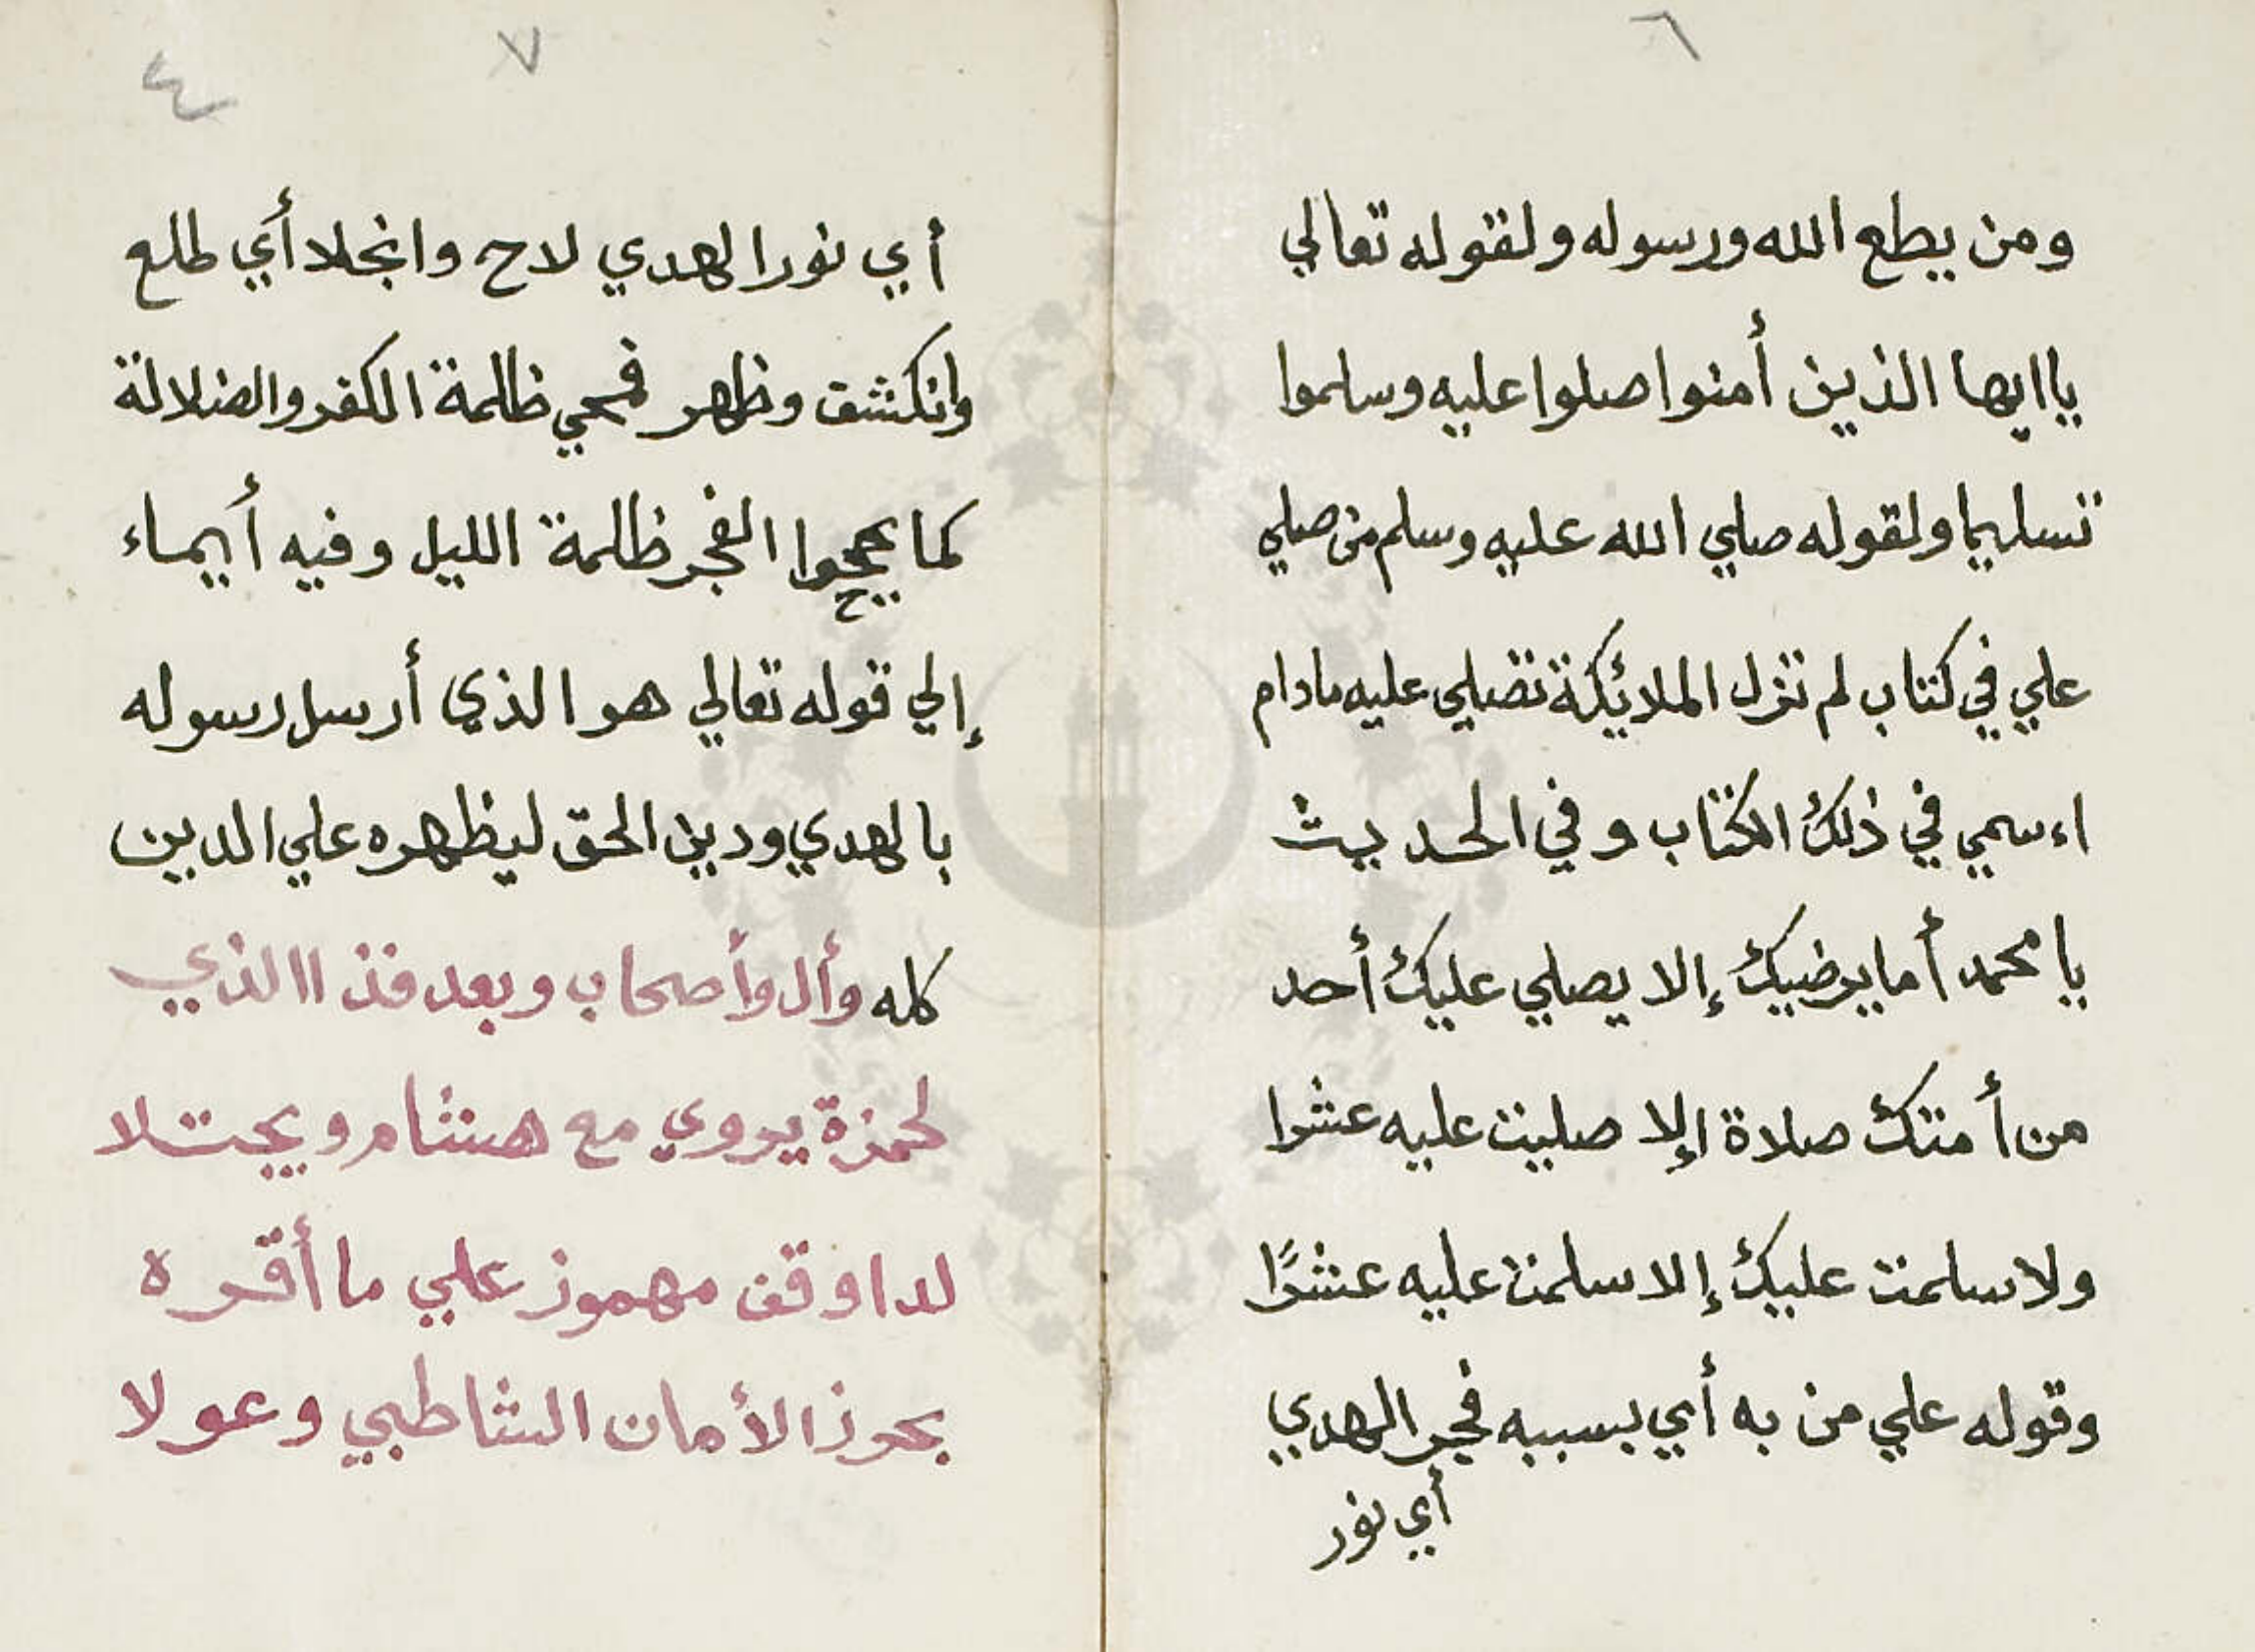 ٦
ومن يطع الله ورسوله ولقوله تعالي
ياايها الذين أمنوا صلوا عليه وسلموا
تسليما ولقوله صلي الله عليه وسلم من صلي
علي في كتاب لم تزل الملائيكة تصلي عليه مادام
اءسمي في ذلك الكتاب وفي الحديث
يا محمد أما يرضيك إلا يصلي عليك أحد
من أمتك صلاة اإلا صليت عليه عشرا
ولا سلمت عليك إلا سلمت عليه عشرًا
وقوله علي من به أي بسببه فجر الهدي
أي نور
٧
٤
أي نور الهدي لاح وانجلا أي طلع
وانكشف وظهر فمحي ظلمة الكفر والضلالة
كما يمحوا الفجر ظلمة الليل وفيه أيماء
إلي قوله تعالي هو الذي أرسل رسوله
بالهدي ودين الحق ليظهره علي الدين
كله وأل وأصحاب وبعد فذ االذي
لحمزة يروي مع هشام ويجتلا
لدا وقف مهموز علي ما أقره
بحرز الأمان الشاطبي وعولا